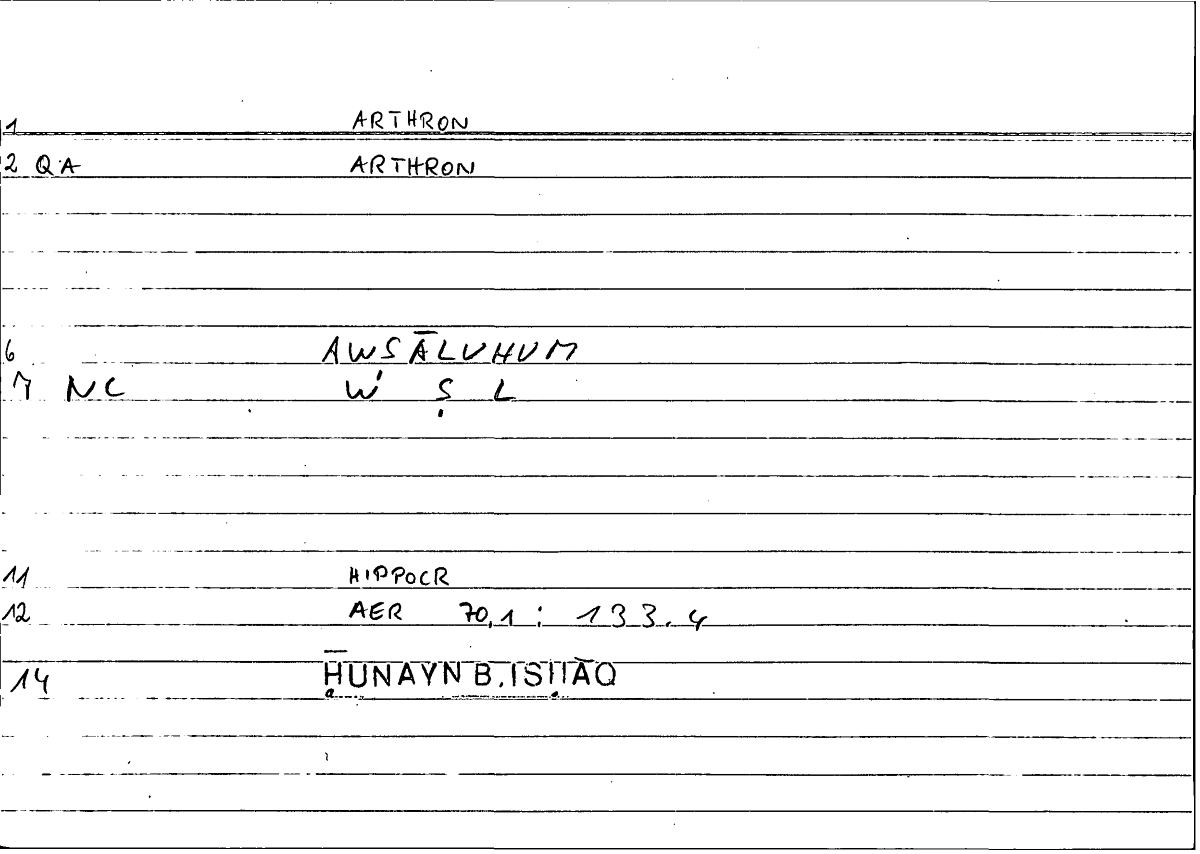 1 ARTHRON
2 QA ARTHRON
6 AWSĀLUHUM
7 NC W' Ṣ L
11 HIPPOCR
12 AER 70,1 : 133.4
14 ḤUNAYN B. ISḤĀQ